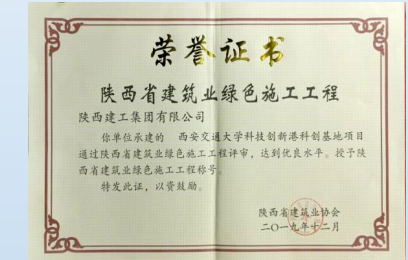 荣誉证书
陕西省建筑业绿色施工工程
陕西建工集团有限公司
你单位承建的 西安交通大学科技创新港科创基地项目
通过陕西省建筑业绿色施工工程评审，达到优良水平。授予陕
西省建筑业绿色施工工程称号。
特发此证，以资鼓励。
陕西省建筑业协会
二〇一九年十二月